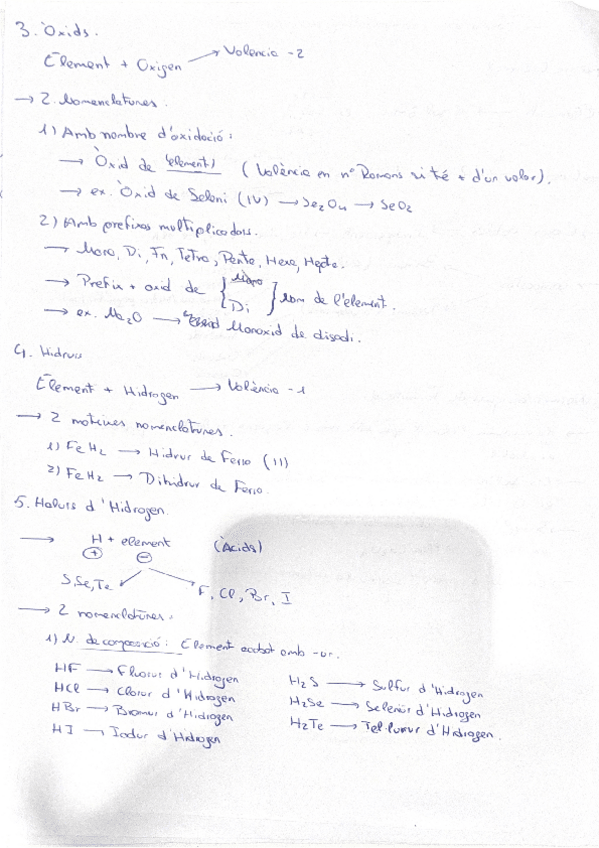 3. Òxids.
Element + Oxigen → Valencia -2
→ 2 Nomenclatures.
1) Amb nombre d'oxidació:
→ Òxid de element (València en nº Romans si té + d'un valor).
→ ex. Òxid de Seleni (IV) → Se2O4 → SeO2
2) Amb prefixos multiplicadors.
→ Mono, Di, Tri, Tetra, Penta, Hexa, Hepta.
→ Prefix + oxid de { Mono Di } Nom de l'element.
→ ex. Na2O → Monoxid de disodi.
4. Hidrurs
Element + Hidrogen → València -1
→ 2 nomenclatures.
1) FeH2 → Hidrur de Ferro (II)
2) FeH2 → Dihidrur de Ferro.
5. Halurs d'Hidrogen.
→ H + element (Àcids)
+ −
S, Se, Te F, Cl, Br, I
→ 2 nomenclatures.
1) N. de composició: Element acabat amb -ur.
HF → Fluorur d'Hidrogen
HCl → Clorur d'Hidrogen
HBr → Bromur d'Hidrogen
HI → Iodur d'Hidrogen
H2S → Sulfur d'Hidrogen
H2Se → Seleniur d'Hidrogen
H2Te → Tel·lurur d'Hidrogen.